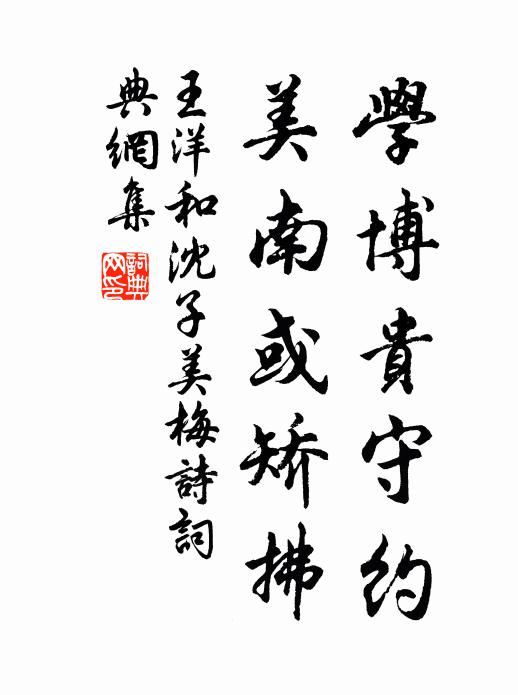 學博貴守約
美南或矯拂
王洋和沈子美梅詩詞
典網集
詞典
网印